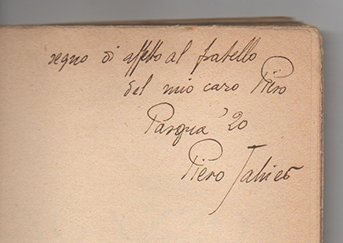 segno di affetto al fratello
del mio caro Piero
Pasqua '20
Piero Jahier